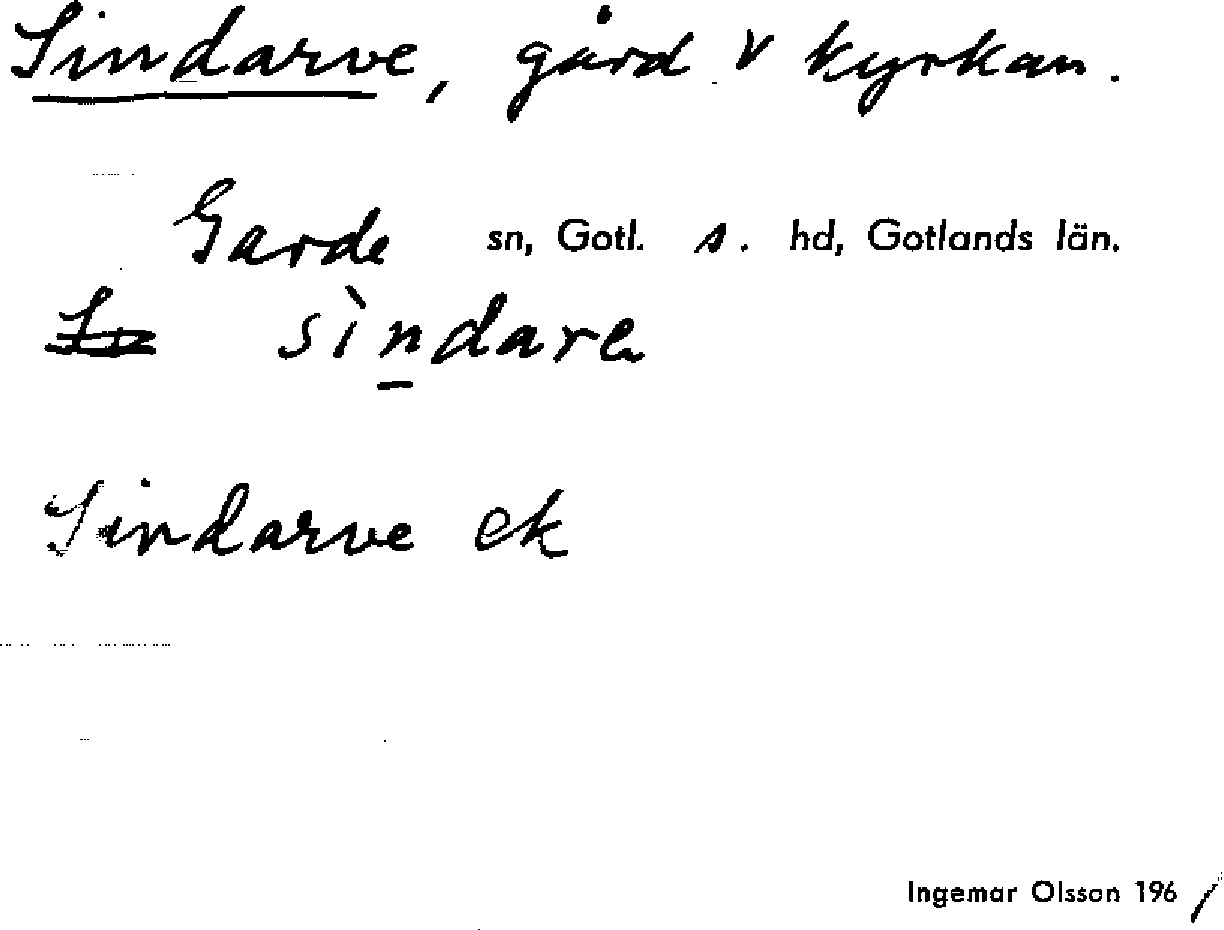 Sindarve, gård v kyrkan.
Garde sn, Gotl. s. hd, Gotlands län.
sìndare
Sindarve ek
Ingemar Olsson 1961